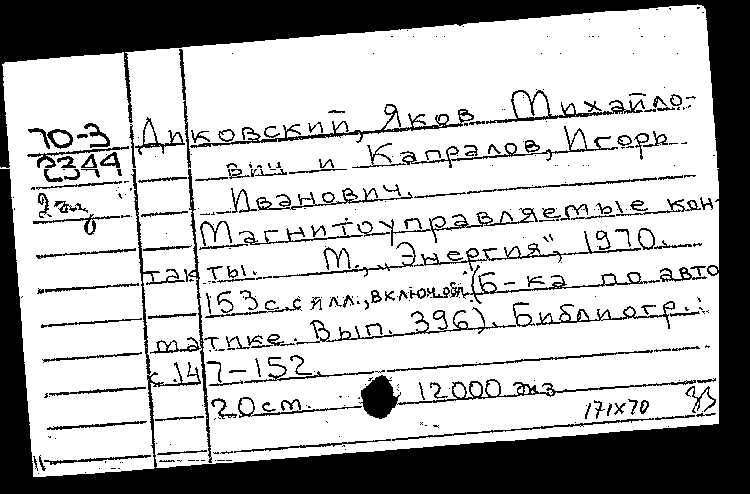 70-3
2344
2 экз
Диковский, Яков Михайло-
вич и Капралов, Игорь
Иванович.
Магнитоуправляемые кон-
такты. М., „Энергия", 1970.
153 с. с илл., включ. обл. (Б-ка по авто
матике. Вып. 396). Библиогр.:
с. 147-152.
20 см. 12000 экз
171х70